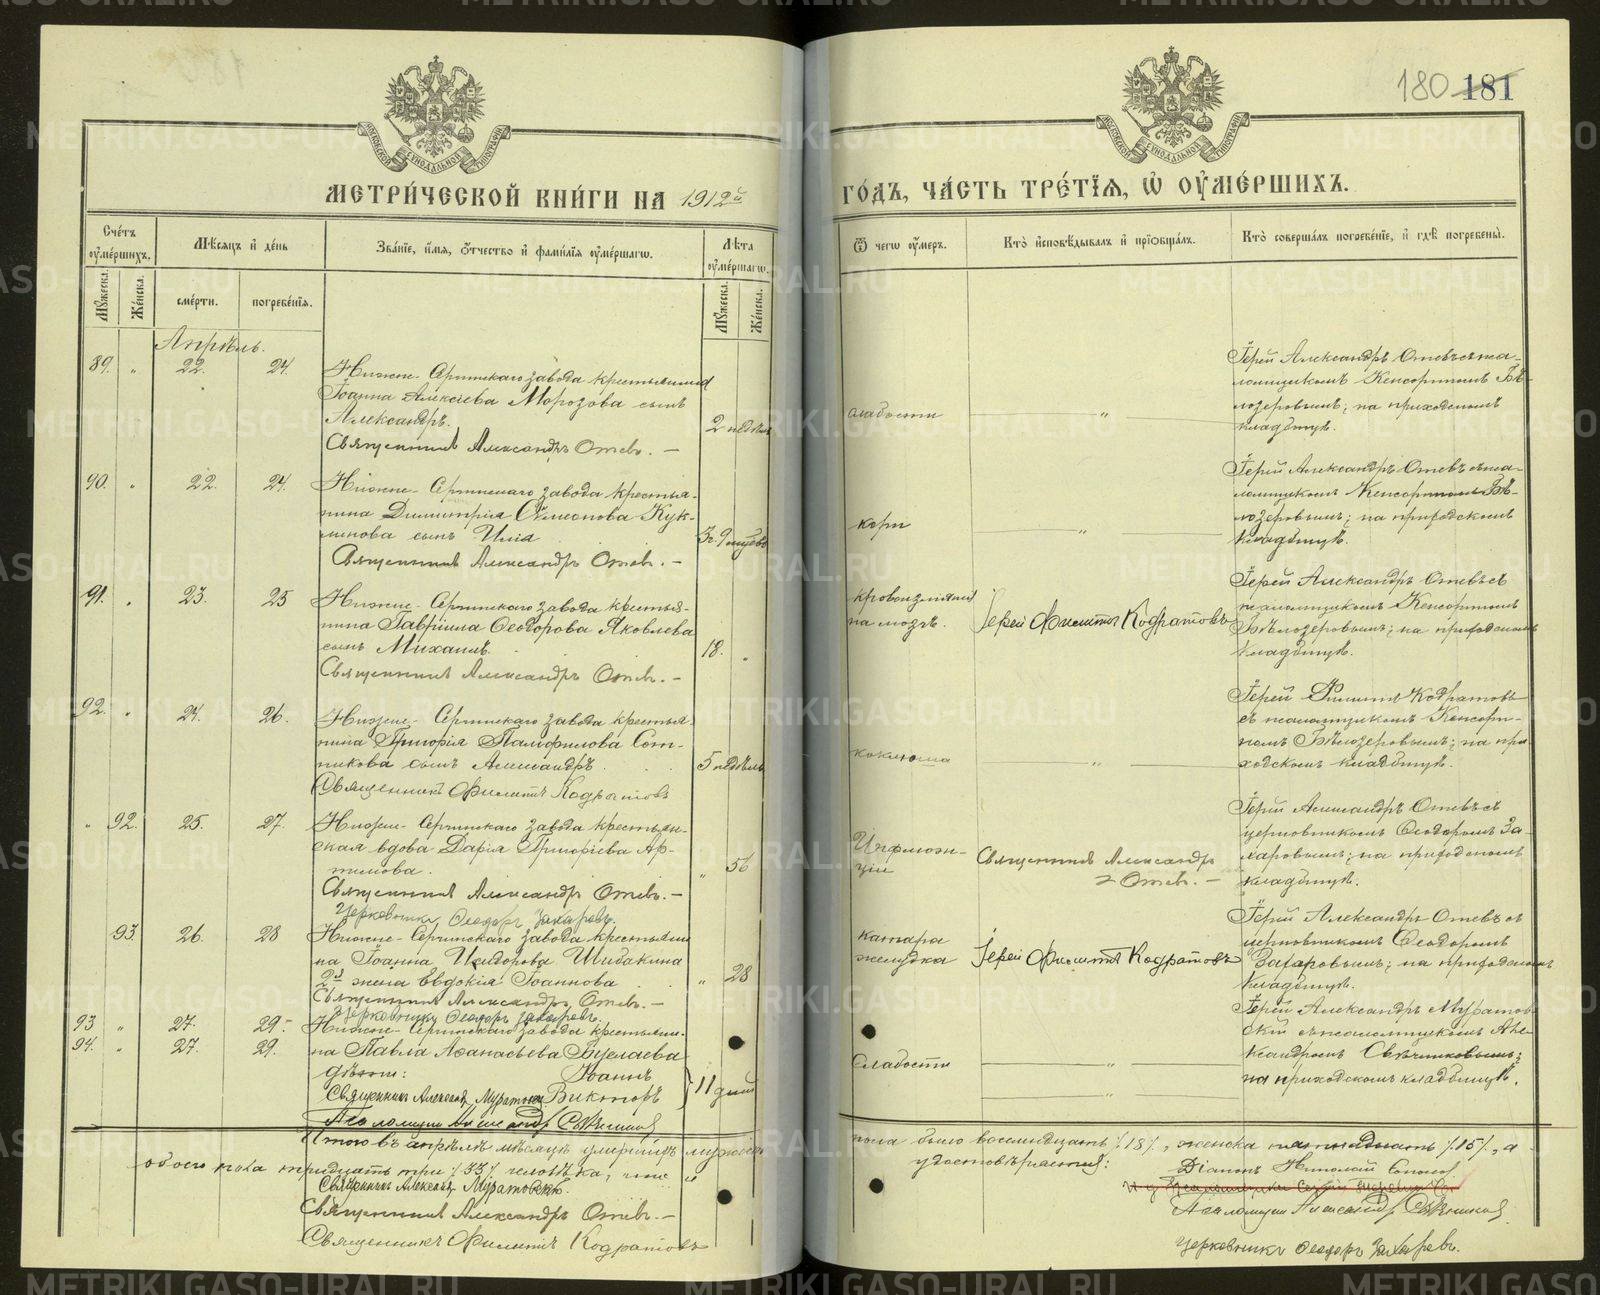 180 181
МЕТРИ́ЧЕСКОЙ КНИ́ГИ НА 1912й
ГО́ДЪ, ЧА́СТЬ ТРЕ́ТЇѦ, Ѡ҆ ОУ҆МЕ́РШИХЪ.
Сче́тъ оу҆ме́ршихъ.
Мꙋ́жеска.
Же́нска.
Мѣ́сяцъ и҆ де́нь
сме́рти.
погребе́нїѧ.
Зва́нїе, и҆́мѧ, ѻ҆́тчество и҆ фами́лїѧ оу҆ме́ршагѡ.
Лѣ́та оу҆ме́ршагѡ.
Мꙋ́жеска.
Же́нска.
Ѿ чегѡ̀ оу҆́меръ.
Кто̀ и҆сповѣ́дывалъ и҆ прїѡбща́лъ.
Кто̀ соверша́лъ погребе́нїе, и҆ гдѣ̀ погребены̀.
Апрѣль.
89. " 22. 24.
Нижне-Сергинскаго завода крестьянина
Іоанна Алексіева Морозова сынъ
Александръ.
Священникъ Александръ Отевъ. —
2 недѣль
слабости
"
Іерей Александръ Отевъ съ пса-
ломщикомъ Ксенофонтомъ Бѣ-
лозеровымъ; на приходскомъ
кладбищѣ.
90. " 22. 24.
Нижне-Сергинскаго завода крестья-
нина Димитрія Сѵмеонова Кук-
линова сынъ Илія
Священникъ Александръ Отевъ. —
кори
"
Іерей Александръ Отевъ съ пса-
ломщикомъ Ксенофонтомъ Бѣ-
лозеровымъ; на приходскомъ
кладбищѣ.
91. " 23. 25
Нижне-Сергинскаго завода крестья-
нина Гавріила Ѳеодорова Яковлева
сынъ Михаилъ.
Священникъ Александръ Отевъ. —
18. "
кровоизліянія
на мозгъ.
Іерей Филиппъ Кодратовъ
Іерей Александръ Отевъ съ
псаломщикомъ Ксенофонтомъ
Бѣлозеровымъ; на приходскомъ
кладбищѣ.
92. " 24. 26.
Нижне-Сергинскаго завода крестья-
нина Григорія Памфилова Сот-
никова сынъ Александръ
Священникъ Филиппъ Кодратовъ
5 недѣль
коклюша
"
Іерей Филиппъ Кодратовъ
съ псаломщикомъ Ксенофон-
томъ Бѣлозеровымъ; на при-
ходскомъ кладбищѣ.
" 92. 25. 27.
Нижне-Сергинскаго завода крестьян-
ская вдова Дарія Григоріева Ар-
темова.
Священникъ Александръ Отевъ. —
Церковникъ Ѳеодоръ Захаровъ.
" 56
Инфлюэн-
ціи
Священникъ Александръ
Отевъ. —
Іерей Александръ Отевъ съ
церковникомъ Ѳеодоромъ За-
харовымъ; на приходскомъ
кладбищѣ.
93. 26. 28
Нижне-Сергинскаго завода крестьяни-
на Іоанна Исидорова Шибакина
2я жена Евдокія Іоаннова
Священникъ Александръ Отевъ. —
Церковникъ Ѳеодоръ Захаровъ.
" 28
катарра
желудка
Іерей Филиппъ Кодратовъ
Іерей Александръ Отевъ съ
церковникомъ Ѳеодоромъ
Захаровымъ; на приходскомъ
кладбищѣ.
93 " 27. 29.
94. " 27. 29.
Нижне-Сергинскаго завода крестьяни-
на Павла Аѳанасьева
дѣти: Іоаннъ
Викторъ
Священникъ Алексѣй Муратовскій
Псаломщикъ Александръ Свѣчниковъ
11 дней
Слабости
"
Іерей Муратов-
скій съ псаломщикомъ Але-
ксандромъ Свѣчниковымъ;
на приходскомъ кладбищѣ.
Итого въ апрѣлѣ мѣсяцѣ умершихъ мужеска
пола было восемнадцать /18/, женска пятнадцать /15/, а
обоего пола тридцать три /33/ человѣка, что и
удостовѣряемъ:
Священникъ Алексѣй Муратовскій.
Священникъ Александръ Отевъ. —
Священникъ Филиппъ Кодратовъ
Діаконъ Николай
Псаломщикъ Александръ Свѣчниковъ
Церковникъ Ѳеодоръ Захаровъ.
METRIKI.GASO-URAL.RU